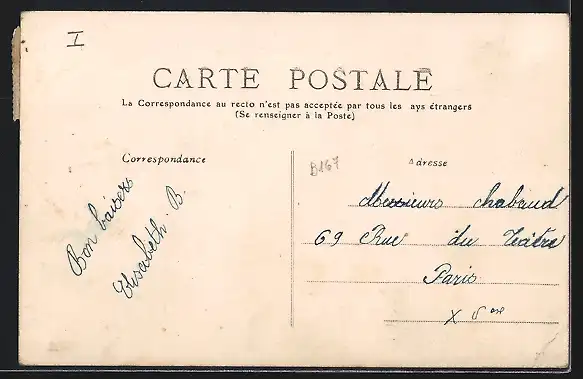 I
CARTE POSTALE
La Correspondance au recto n'est pas acceptée par tous les ays étrangers
(Se renseigner à la Poste)
Correspondance
Adresse
B167
Bon baisers
Elisabeth. B.
Messieurs chabaud
69 Rue du
Paris